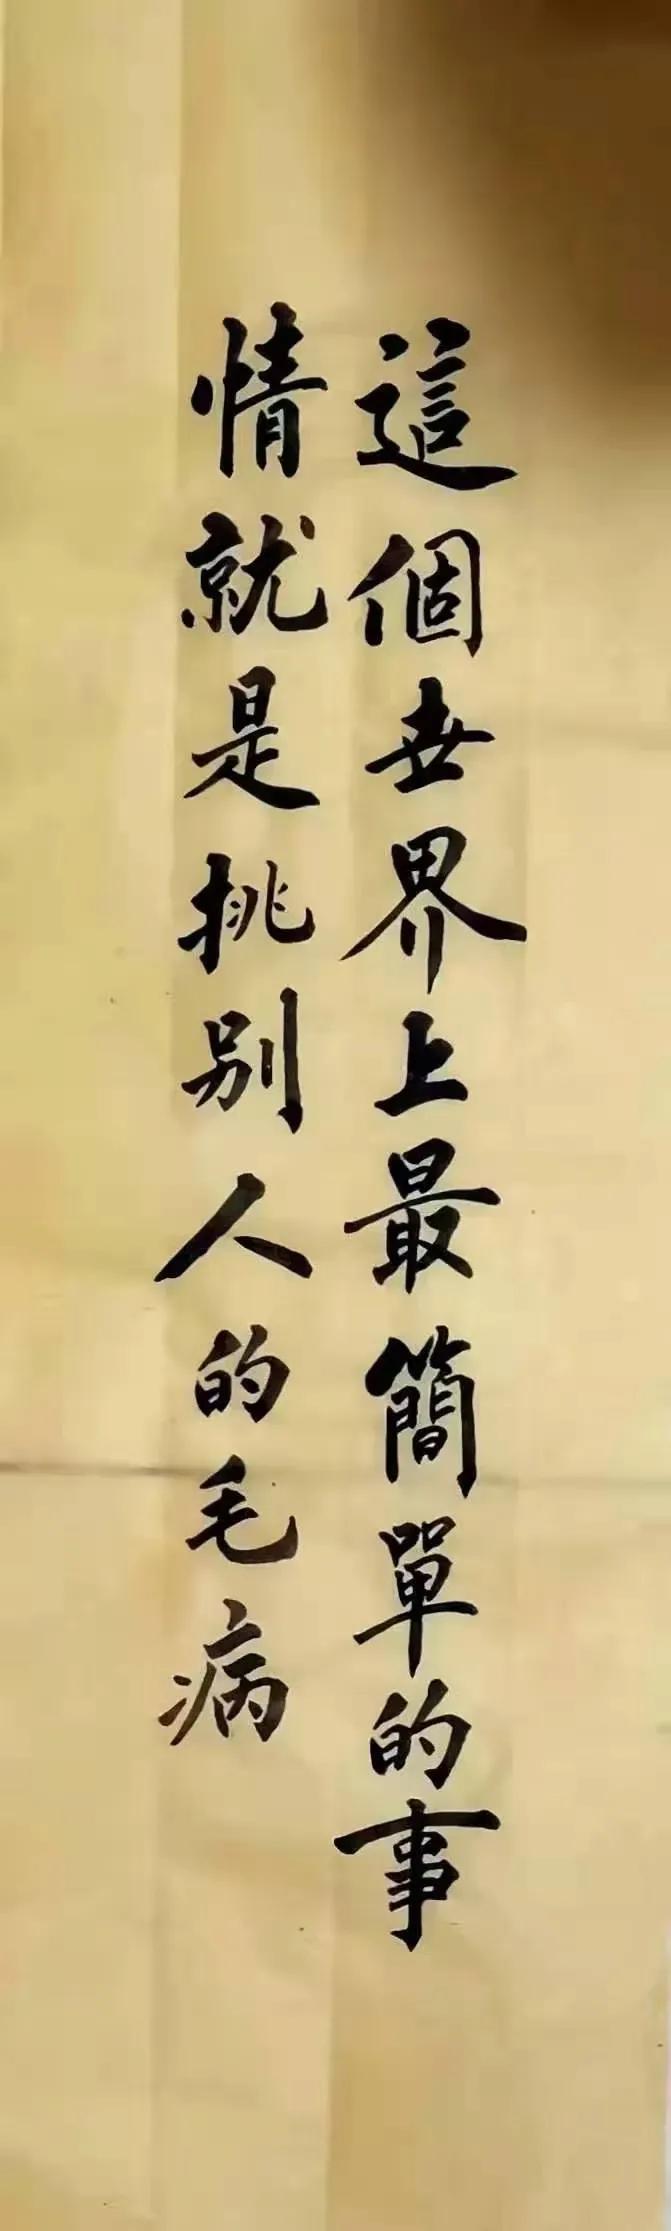 這個世界上最簡單的事
情就是挑别人的毛病